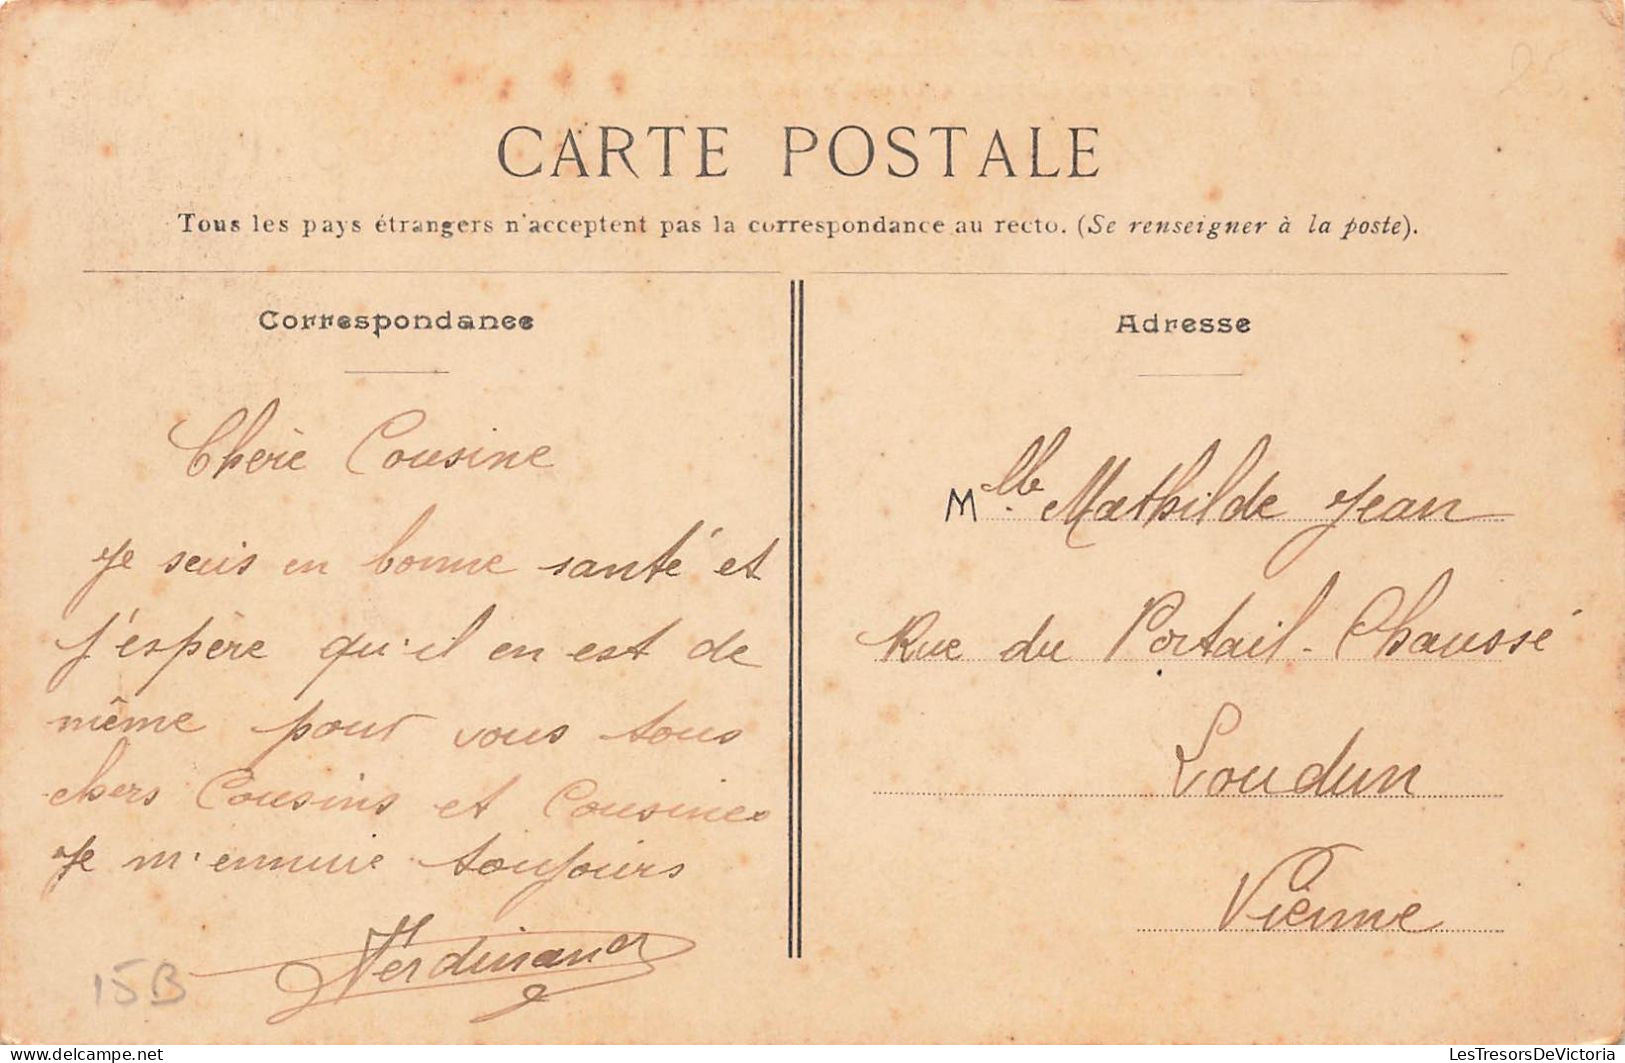 CARTE POSTALE
Tous les pays étrangers n'acceptent pas la correspondance au recto. (Se renseigner à la poste).
Correspondance
Chère Cousine
Je suis en bonne santé et
j'espère qu'il en est de
même pour vous tous
chers Cousins et Cousines
Je m'ennuie toujours
Ferdinand
15B
Adresse
Mlle Mathilde Jean
Rue du Portail-Chaussé
Loudun
Vienne
25
www.delcampe.net
LesTresorsDeVictoria